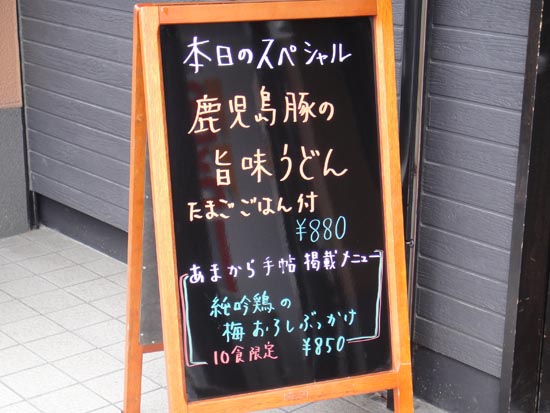 本日のスペシャル
鹿児島豚の
旨味うどん
たまごごはん付
¥880
あまから手帖 掲載メニュー
純吟鶏の
梅おろしぶっかけ
10食限定 ¥850